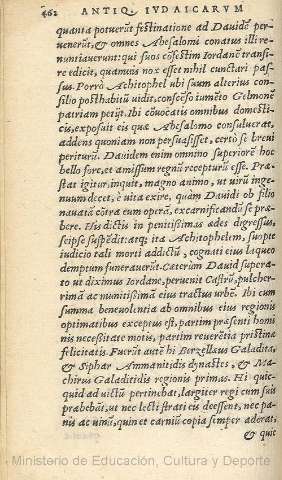 462 ANTIQ. IVDAICARVM
quanta potuerūt festinatione ad Dauidē per-
uenerūt, & omnes Abesalomi conatus illi re-
nuntiauerunt: qui suos cōfestim Iordanē transi-
re edicit, quamuis nox esset nihil cunctari pas-
sus. Porrò Achitophel ubi suum alterius con-
silio posthabitū uidit, conscēso iumēto Gelmonē
patriam petijt. Ibi cōuocatis omnibus domesti-
cis, exposuit eis quæ Abesalomo consuluerat,
addens quoniam non persuasisset, certò se breui
periturū. Dauidem enim omnino superiorē hoc
bello fore, et amissum regnū recepturū esse. Præ-
stat igitur, inquit, magno animo, ut uirū inge-
nuum decet, è uita exire, quàm Dauidi ob filio
nauatā cōtra eum operā, excarnificandū se præ-
bere. His dictis in penitissimas ædes digressus,
seipse suspēdit: atq; ita Achitophelem, suopte
iudicio tali morti addictū, cognati eius laqueo
demptum funerauerūt. Cæterùm Dauid supera-
to ut diximus Iordane, peruenit Castrū, pulcher-
rimā ac munitissimā eius tractus urbē. Ibi cum
summa beneuolentia ab omnibus eius regionis
optimatibus exceptus est, partim præsenti homi
nis necessitate motis, partim reuerētia pristinæ
felicitatis. Fuerūt autē hi Berzellæus Galadita,
& Siphar Ammanitidis dynastes, & Ma-
chirus Galaditidis regionis primas. Hi quic-
quid ad uictū pertinebat, largiter regi cum suis
præbebāt, ut nec lecti strati eis deessent, nec pa-
nis ac uinū, quin et carniū copia semper aderat,
& quic
Ministerio de Educación, Cultura y Deporte